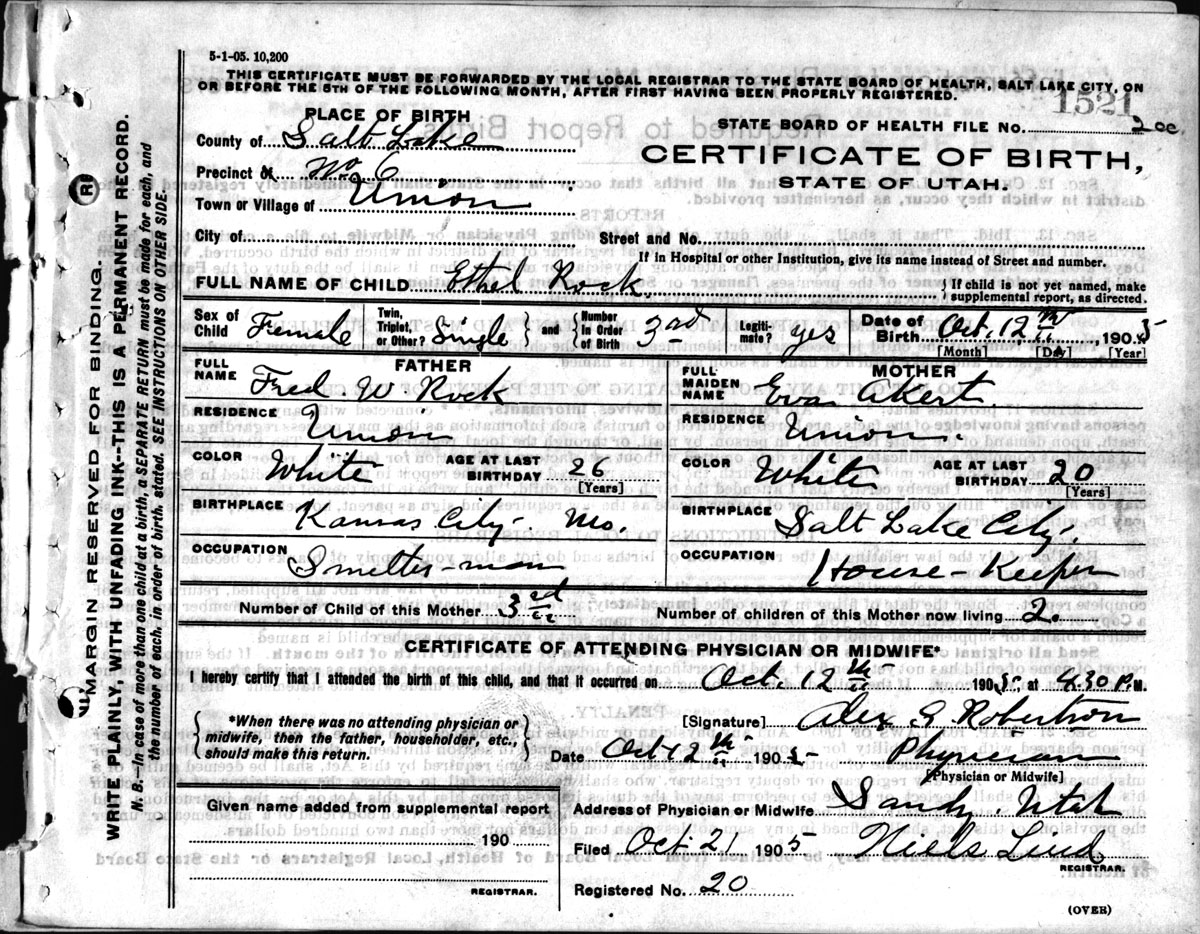 5-1-05. 10,200
THIS CERTIFICATE MUST BE FORWARDED BY THE LOCAL REGISTRAR TO THE STATE BOARD OF HEALTH, SALT LAKE CITY, ON
OR BEFORE THE 5TH OF THE FOLLOWING MONTH, AFTER FIRST HAVING BEEN PROPERLY REGISTERED.
1521
PLACE OF BIRTH
STATE BOARD OF HEALTH FILE NO. 200
County of Salt Lake
CERTIFICATE OF BIRTH,
STATE OF UTAH.
Precinct of No. 6
Town or Village of Union
City of
Street and No.
If in Hospital or other Institution, give its name instead of Street and number.
FULL NAME OF CHILD Ethel Rock.
{ If child is not yet named, make
supplemental report, as directed.
Sex of Child Female
Twin, Triplet, or Other? Single
and
Number in Order of Birth 3rd
Legiti-mate? yes
Date of Birth Oct. 12th, 1905
[Month] [Day] [Year]
FATHER
FULL NAME Fred. W. Rock
RESIDENCE Union
COLOR White
AGE AT LAST BIRTHDAY 26
[Years]
BIRTHPLACE Kansas City- Mo.
OCCUPATION Smelter-man
MOTHER
FULL MAIDEN NAME Eva Akert
RESIDENCE Union.
COLOR White
AGE AT LAST BIRTHDAY 20
[Years]
BIRTHPLACE Salt Lake City.
OCCUPATION House-Keeper
Number of Child of this Mother 3rd
Number of children of this Mother now living 2.
CERTIFICATE OF ATTENDING PHYSICIAN OR MIDWIFE*
I hereby certify that I attended the birth of this child, and that it occurred on Oct. 12th 1905, at 4.30 P.M.
{ *When there was no attending physician or
midwife, then the father, householder, etc.,
should make this return. }
[Signature] Alex G Robertson
Date Oct 12th 1905 Physician
[Physician or Midwife]
Given name added from supplemental report
190
REGISTRAR.
Address of Physician or Midwife Sandy, Utah
Filed Oct 21 1905 Niels Lind
REGISTRAR.
Registered No. 20
(OVER)
MARGIN RESERVED FOR BINDING.
WRITE PLAINLY, WITH UNFADING INK--THIS IS A PERMANENT RECORD.
N. B.--In case of more than one child at a birth, a SEPARATE RETURN must be made for each, and
the number of each, in order of birth, stated. SEE INSTRUCTIONS ON OTHER SIDE.